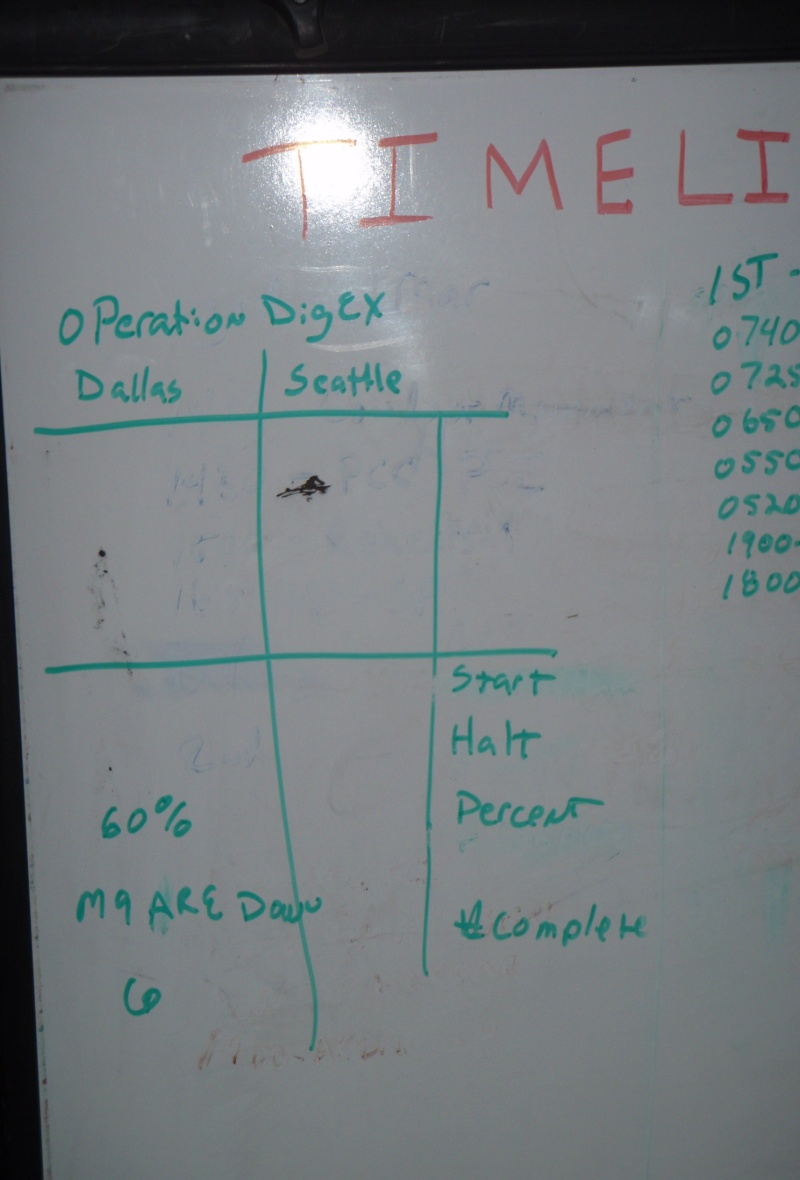 TIMELI
OPeration DigEX
Dallas Seattle
Start
Halt
60% Percent
M9 ARE Down
#Complete
6
1ST -
0740
0725
0650
0550
0520
1900-
1800